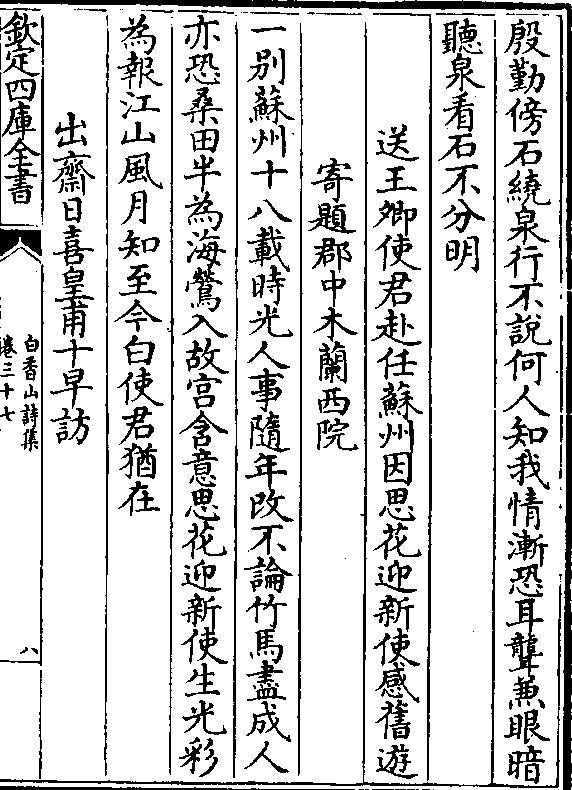 殷勤傍石繞泉行不說何人知我情漸恐耳聾兼眼暗
聽泉看石不分明
送王卿使君赴任蘇州因思花迎新使感舊遊
寄題郡中木蘭西院
一別蘇州十八載時光人事隨年改不論竹馬盡成人
亦恐桑田半為海鶯入故宮含意思花迎新使生光彩
為報江山風月知至今白使君猶在
出齋日喜皇甫十早訪
欽定四庫全書
白香山詩集
卷三十七
八